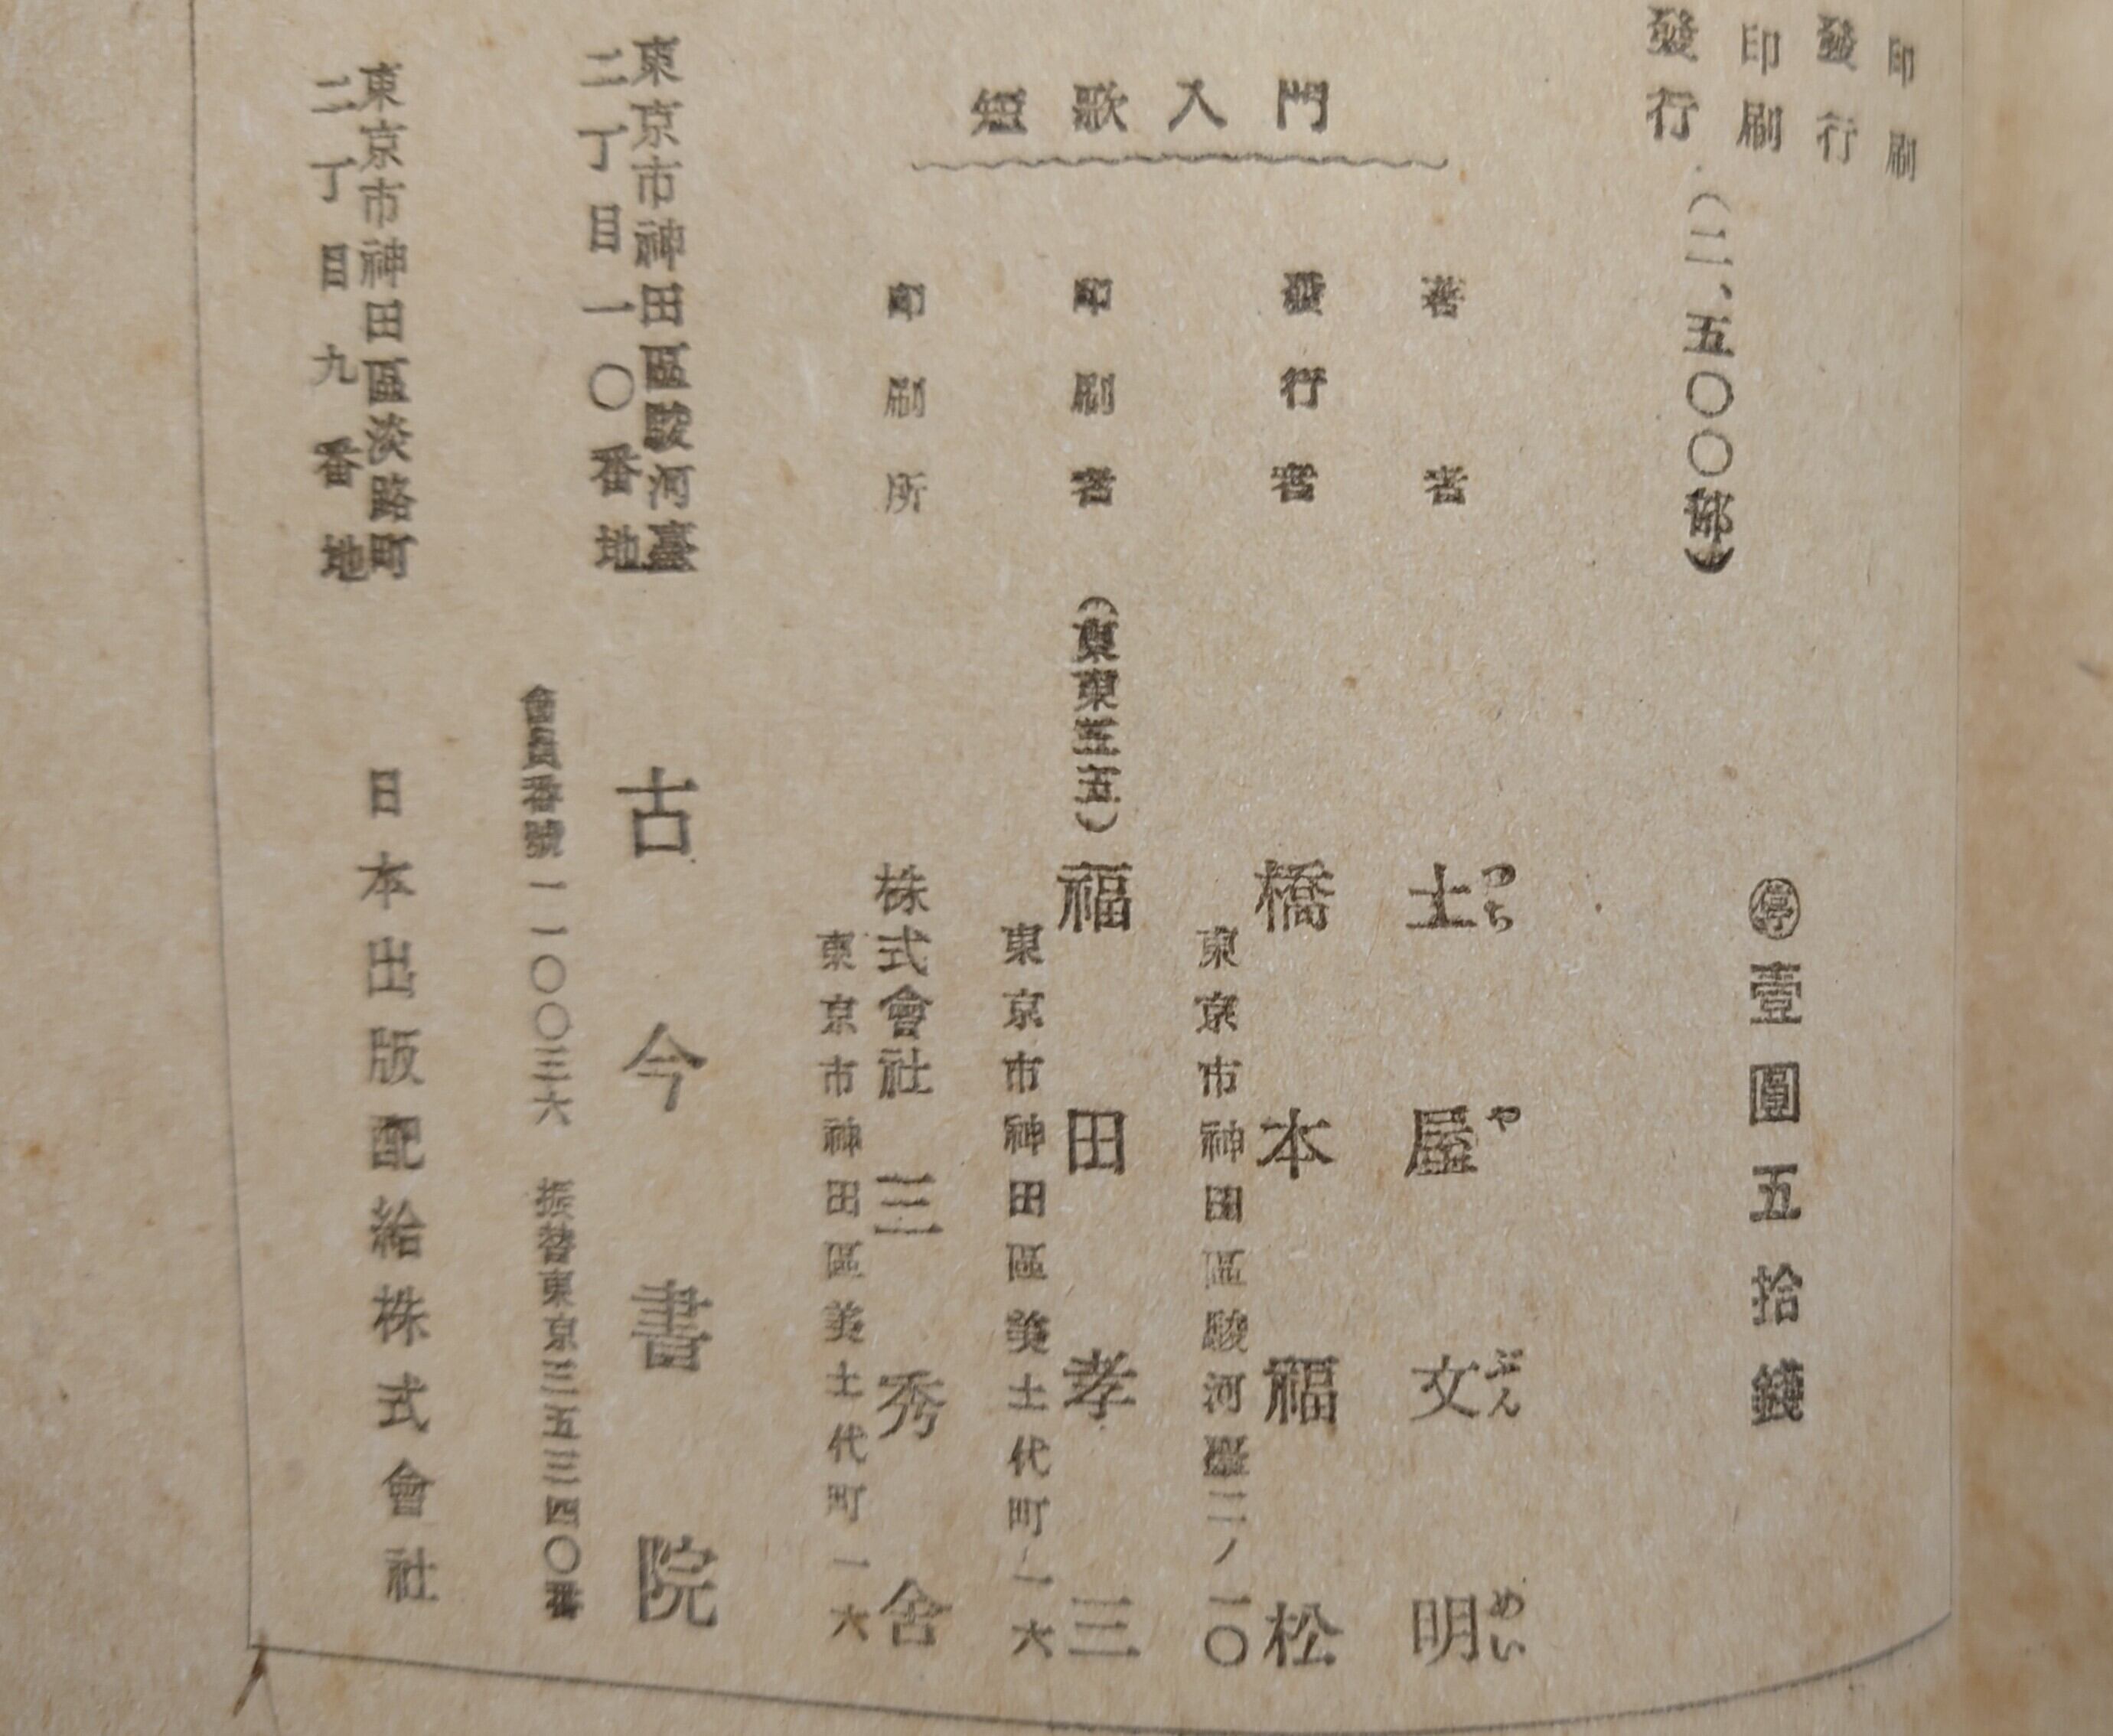 印刷
發行
印刷
發行
(二、五〇〇部)
㊡壹圓五拾錢
短歌入門
著者
土屋文明
つちやぶんめい
發行者
橋本福松
東京市神田區駿河臺二ノ一〇
印刷者
(東東三五)
福田孝三
東京市神田區美土代町一六
印刷所
株式會社 三秀舎
東京市神田區美土代町一六
東京市神田區駿河臺
二丁目一〇番地
古今書院
會員番號一一〇〇三六 振替東京三五三四〇番
東京市神田區淡路町
二丁目九番地
日本出版配給株式會社